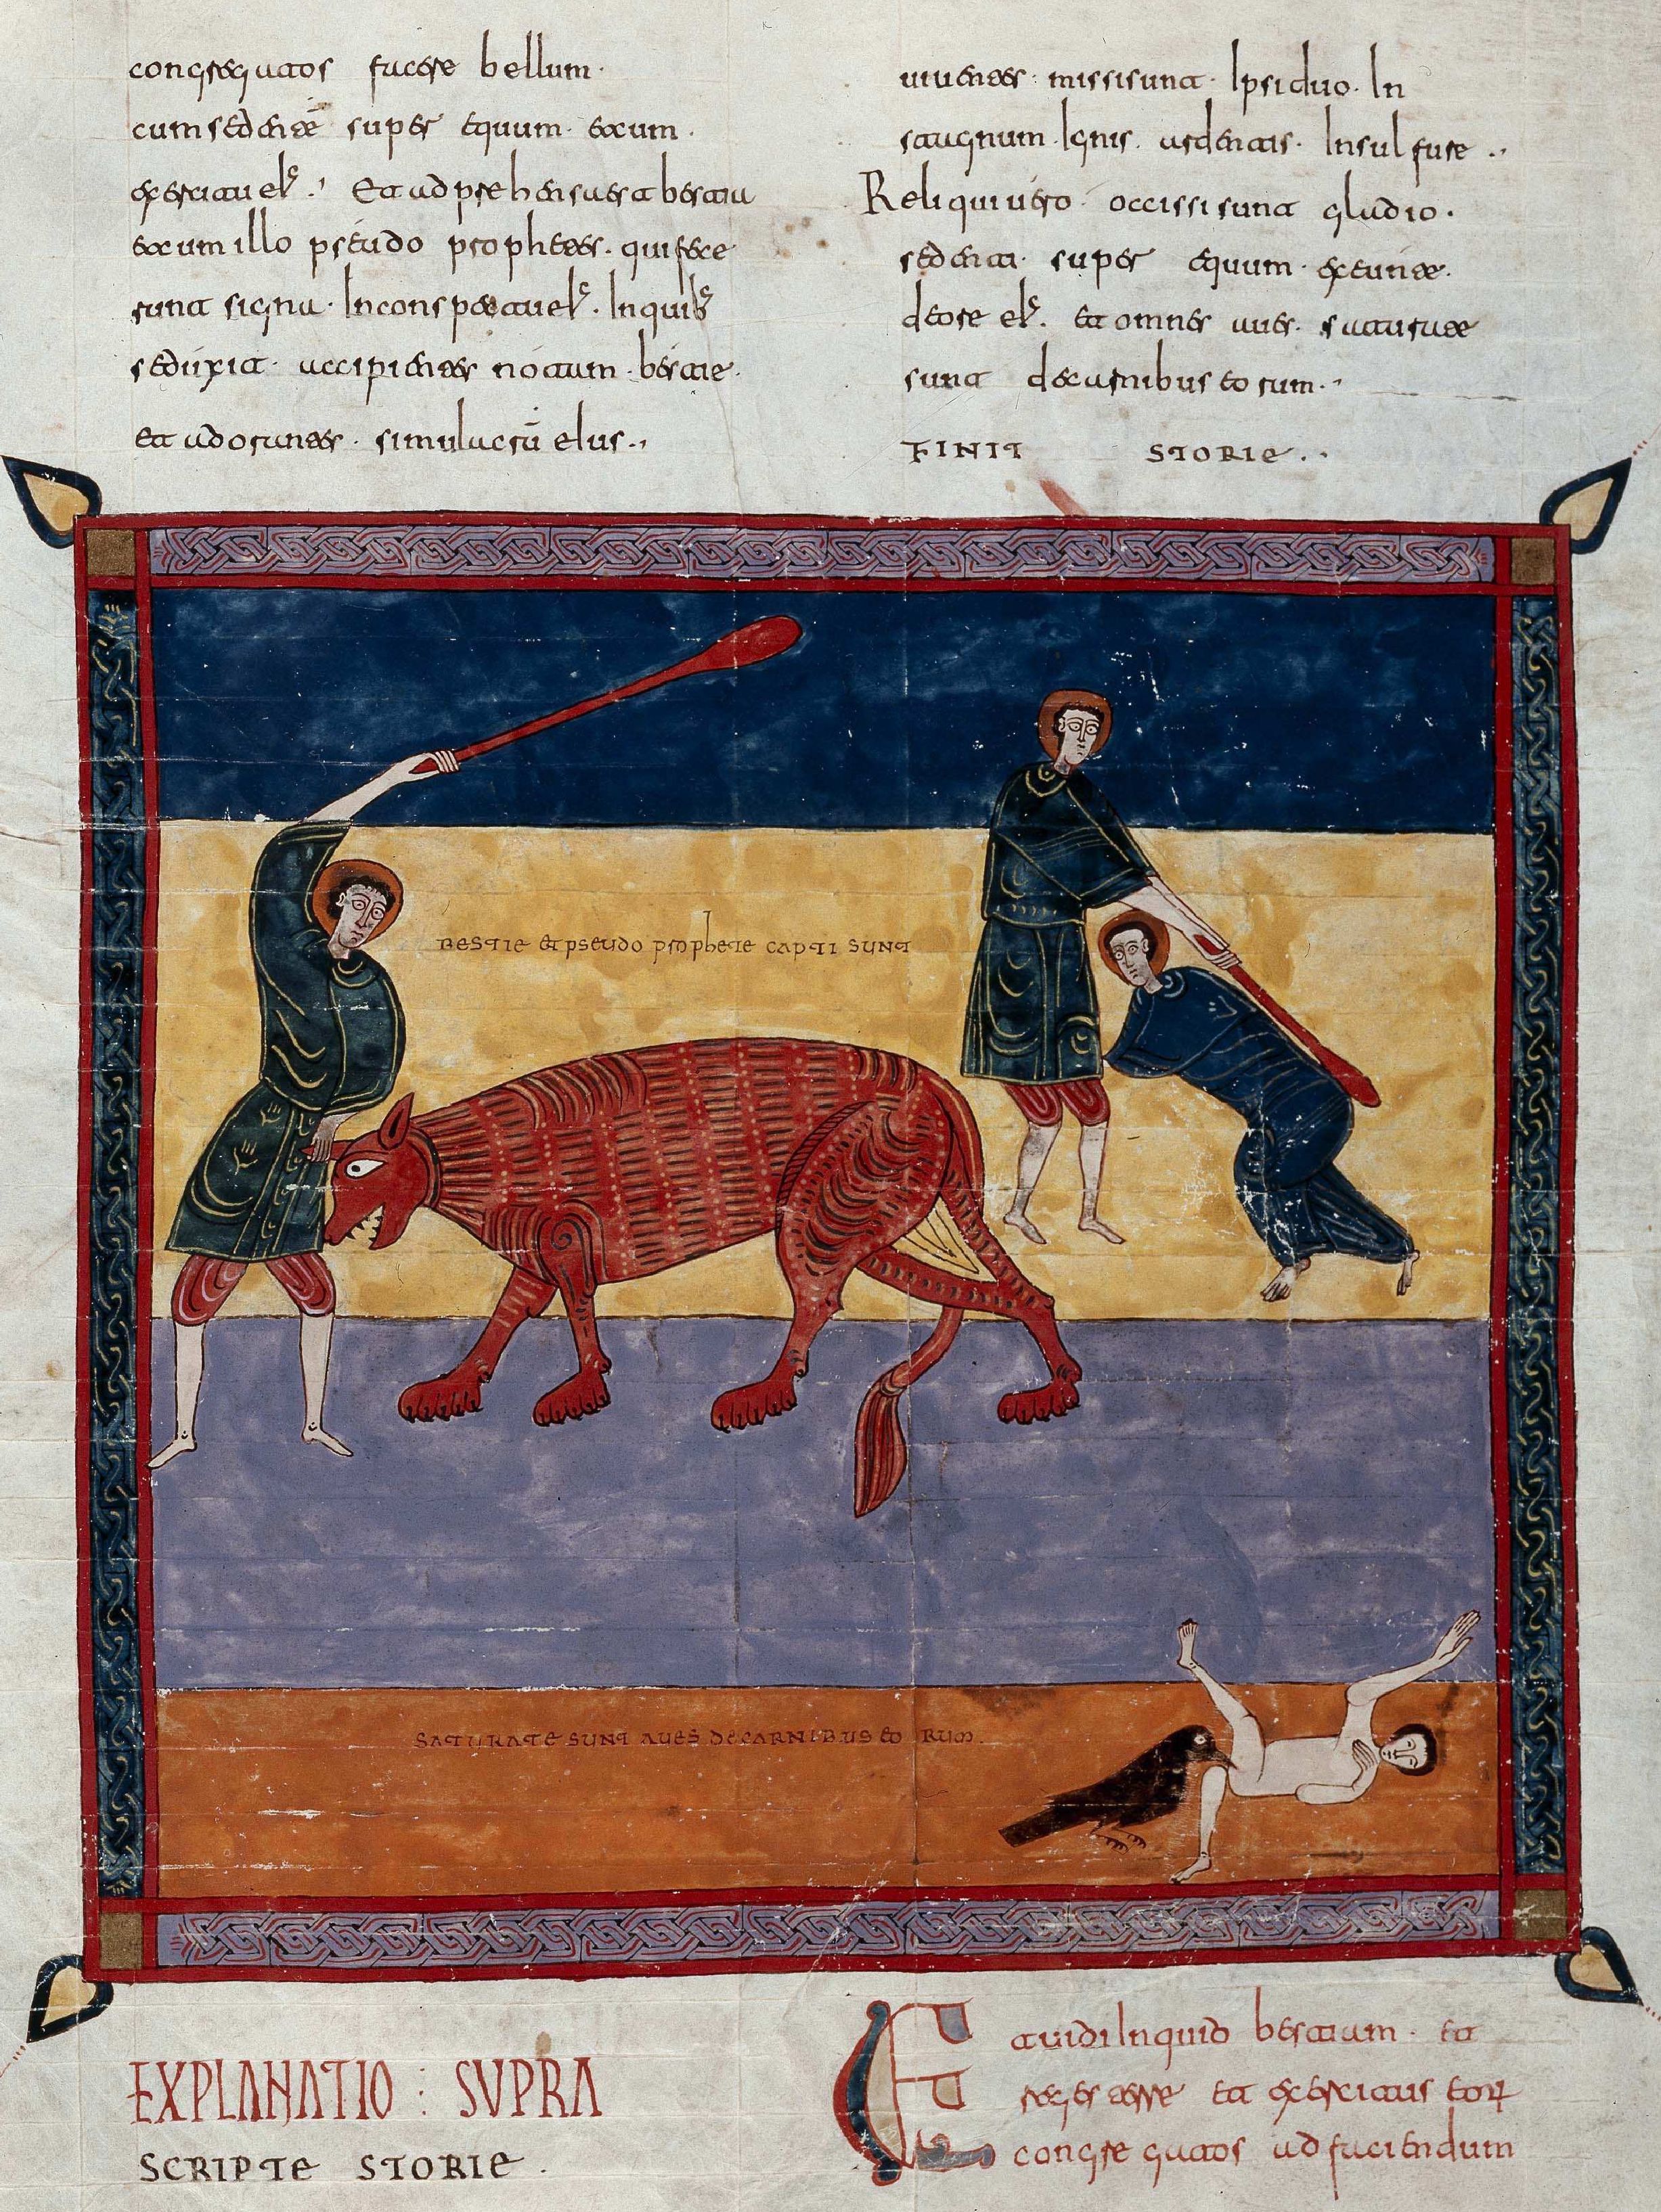 congregatos facere bellum·
cum sedente super equum· et cum·
exercitu eis· Et adprehensa est bestia
et cum illo pseudo prophetes· qui fece
runt signa· In conspectu eis· In quibs
seduxit· accipientes notam· bestie·
et adorantes· simulacrū eius··,
uiuentes· missi sunt· Ipsi duo· In
stagnum· Ignis· ardentis· In sulfure··
Reliqui uero· occissi sunt gladio·
sedenti· super equum· exeunte·
de ore eis· et omnes aues· saturate
sunt de carnibus eorum··
FINIT STORIE··
BESTIE et pseudo prophete capti sunt
SATURATE SUNT AUES DE CARNIBUS EORUM·
EXPLANATIO : SUPRA
SCRIPTE STORIE·
Et uidi Inquid bestiam· et
reges terre et exercitus eorꝝ
congregatos ad faciendum